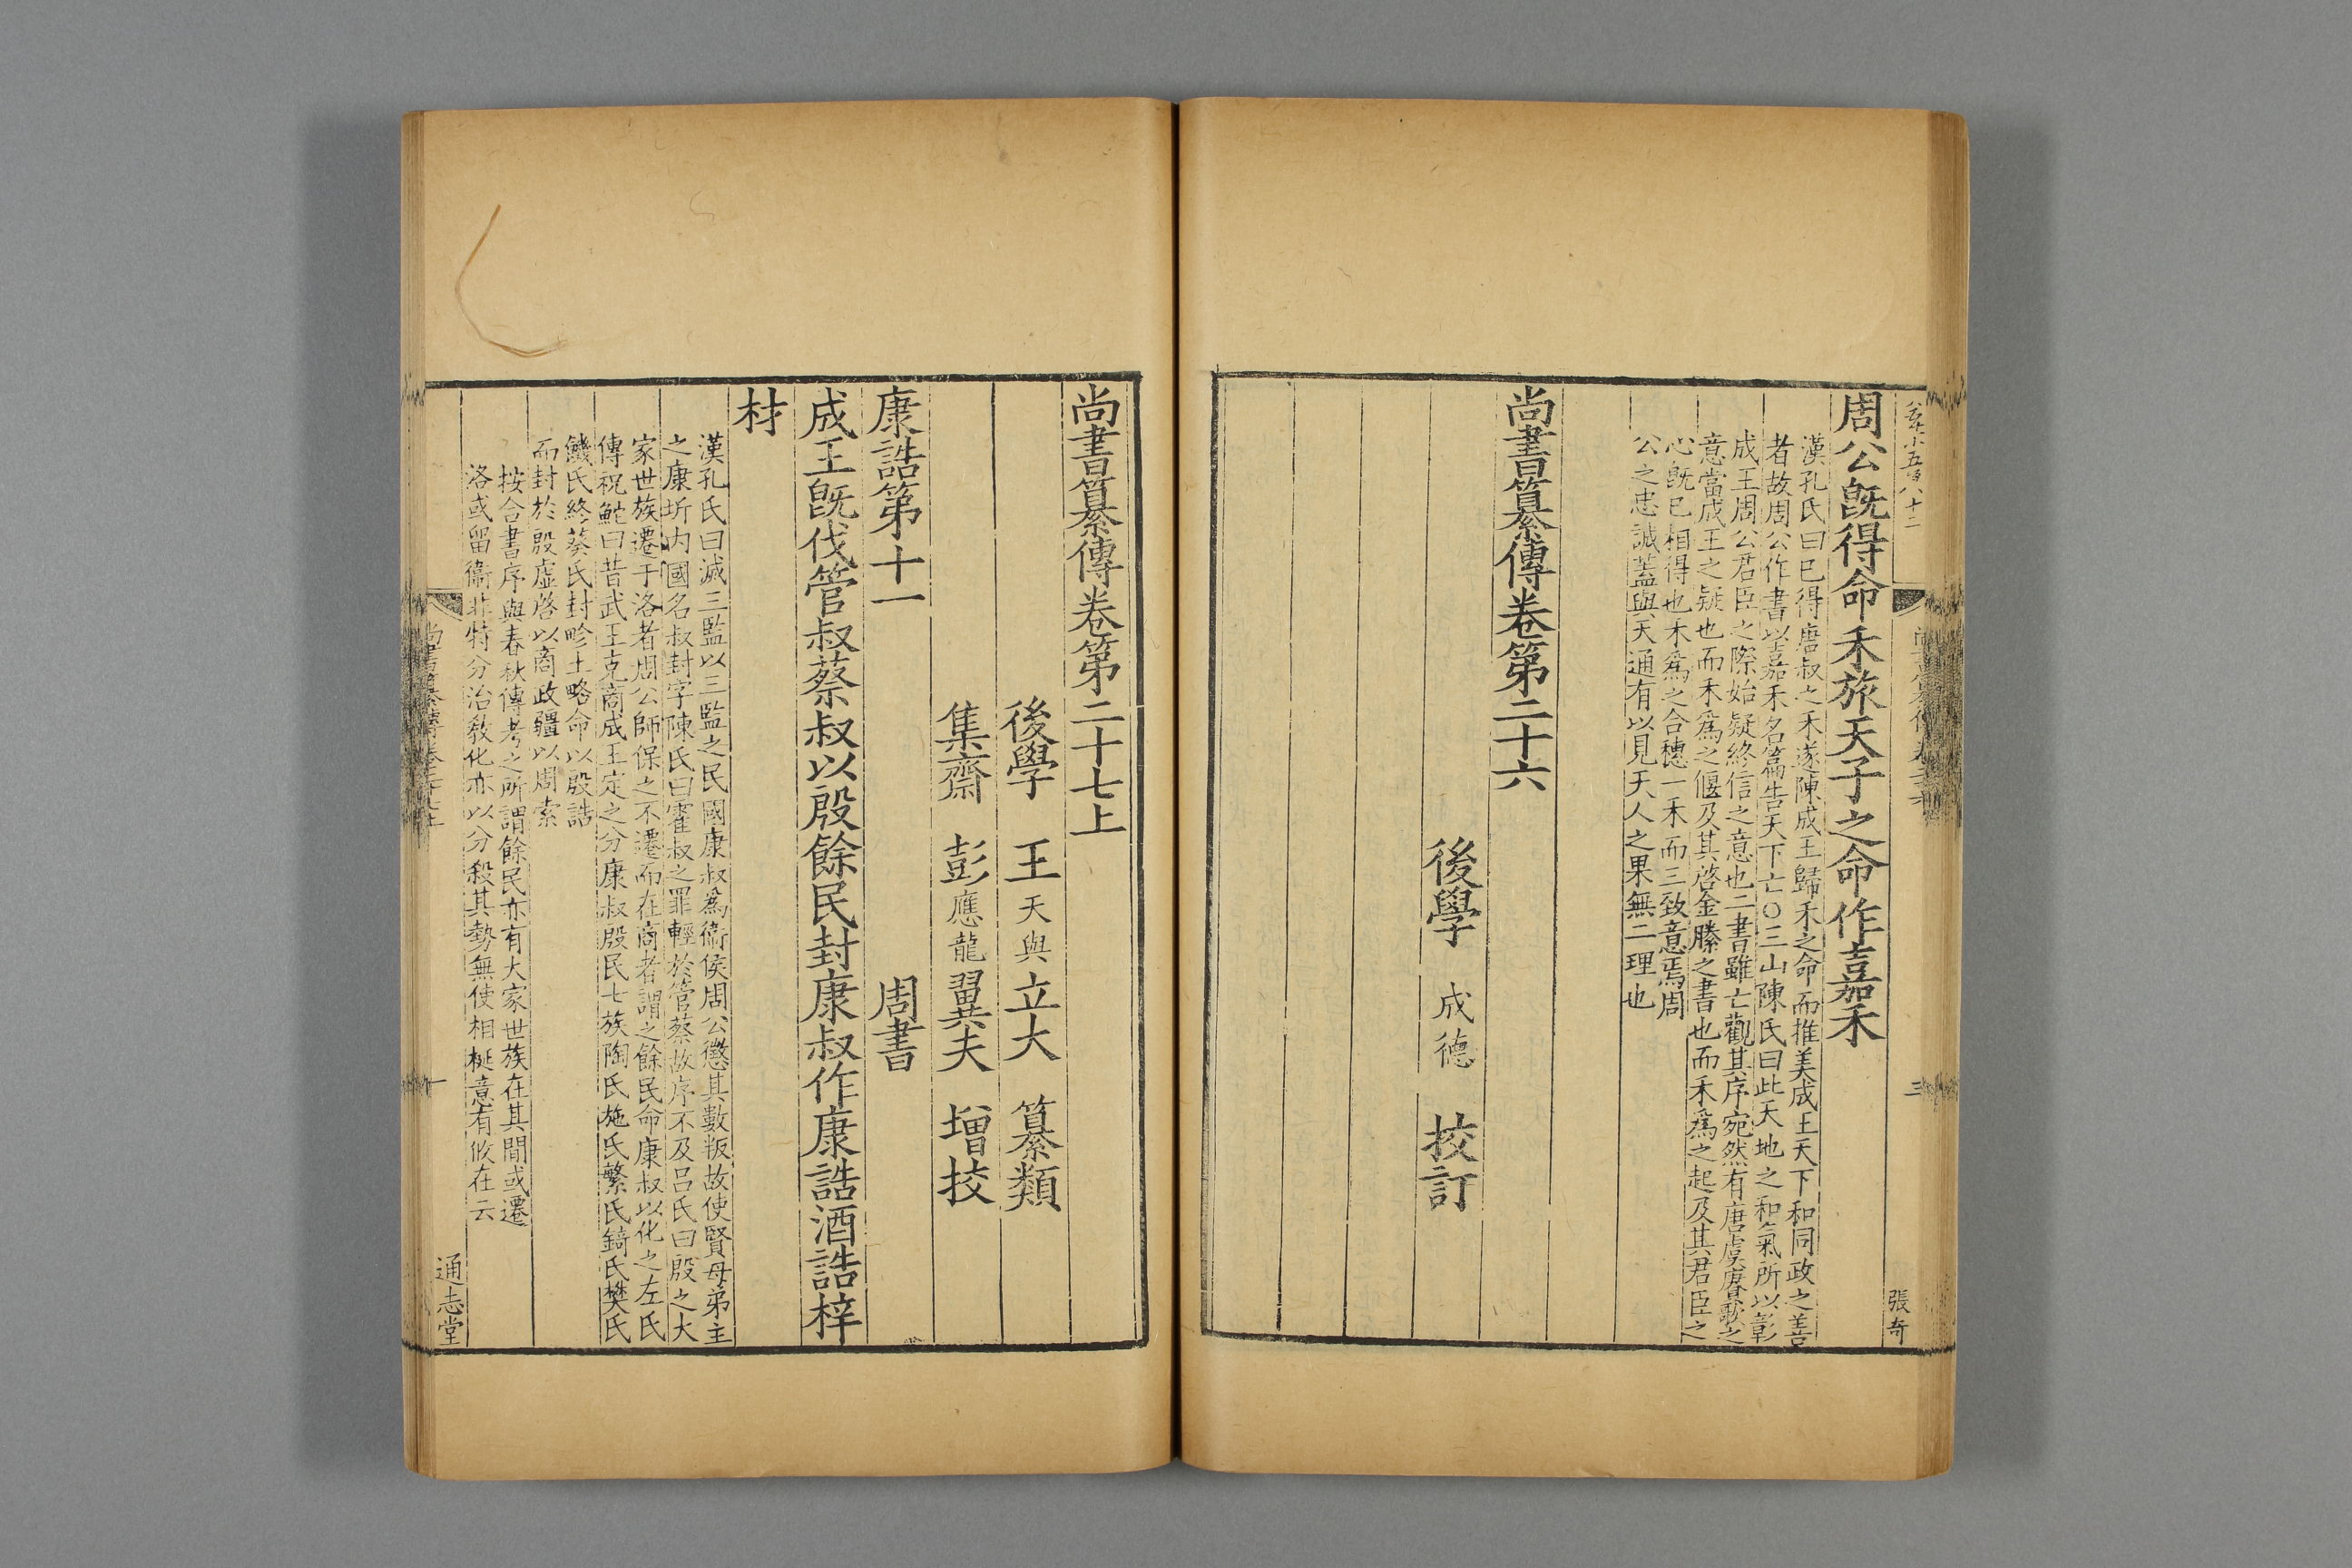 周公旣得命禾旅天子之命作嘉禾
漢孔氏曰已得唐叔之禾遂陳成王歸禾之命而推美成王天下和同政之善
者故周公作書以嘉禾名篇告天下亡○三山陳氏曰此天地之和氣所以彰
成王周公君臣之際始疑終信之意也二書雖亡觀其序宛然有唐虞賡歌之
意當成王之疑也而禾爲之偃及其啓金縢之書也而禾爲之起及其君臣之
心旣已相得也禾爲之合穗一禾而三致意焉周
公之忠誠蓋與天通有以見天人之果無二理也
尚書纂傳卷第二十六
後學 成德 挍訂
三
張奇
尚書纂傳卷第二十七上
後學 王天與立大 纂類
集齋 彭應龍翼夫 增挍
康誥第十一 周書
成王旣伐管叔蔡叔以殷餘民封康叔作康誥酒誥梓
材
漢孔氏曰滅三監以三監之民國康叔爲衞侯周公懲其數叛故使賢母弟主
之康圻內國名叔封字陳氏曰霍叔之罪輕於管蔡故序不及呂氏曰殷之大
家世族遷于洛者周公師保之不遷而在商者謂之餘民命康叔以化之左氏
傳祝鮀曰昔武王克商成王定之分康叔殷民七族陶氏施氏繁氏錡氏樊氏
饑氏終葵氏封畛土略命以殷誥
而封於殷虛啓以商政疆以周索
按合書序與春秋傳考之所謂餘民亦有大家世族在其間或遷
洛或留衞非特分治敎化亦以分殺其勢無使相梃意有攸在云
尚書纂傳卷二十七上
一
通志堂